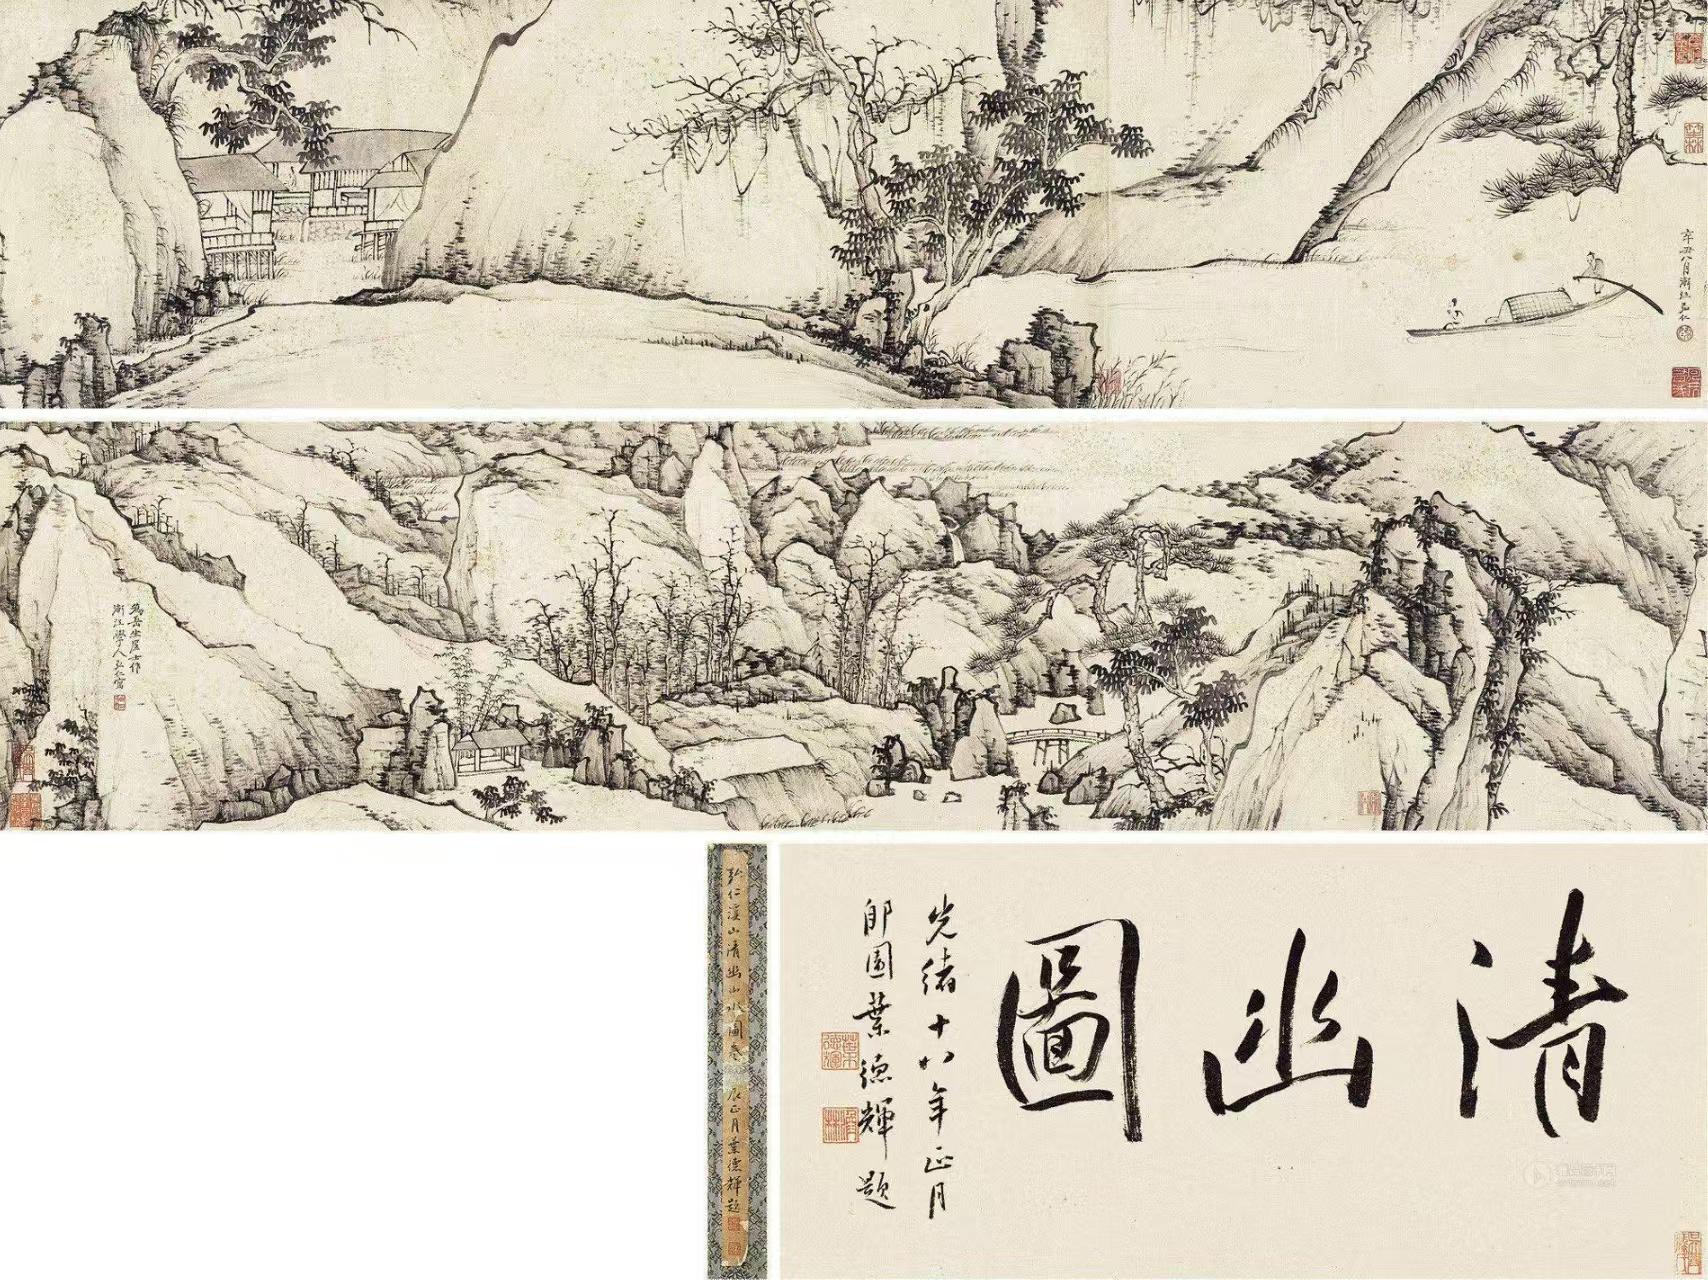 辛丑八月漸江弘仁
為岳坐居士作
漸江學人弘仁寫
弘仁溪山清幽山水圖卷
辰正月葉德輝題
清幽圖
光緒十八年正月
郋園葉德輝題
葉德輝